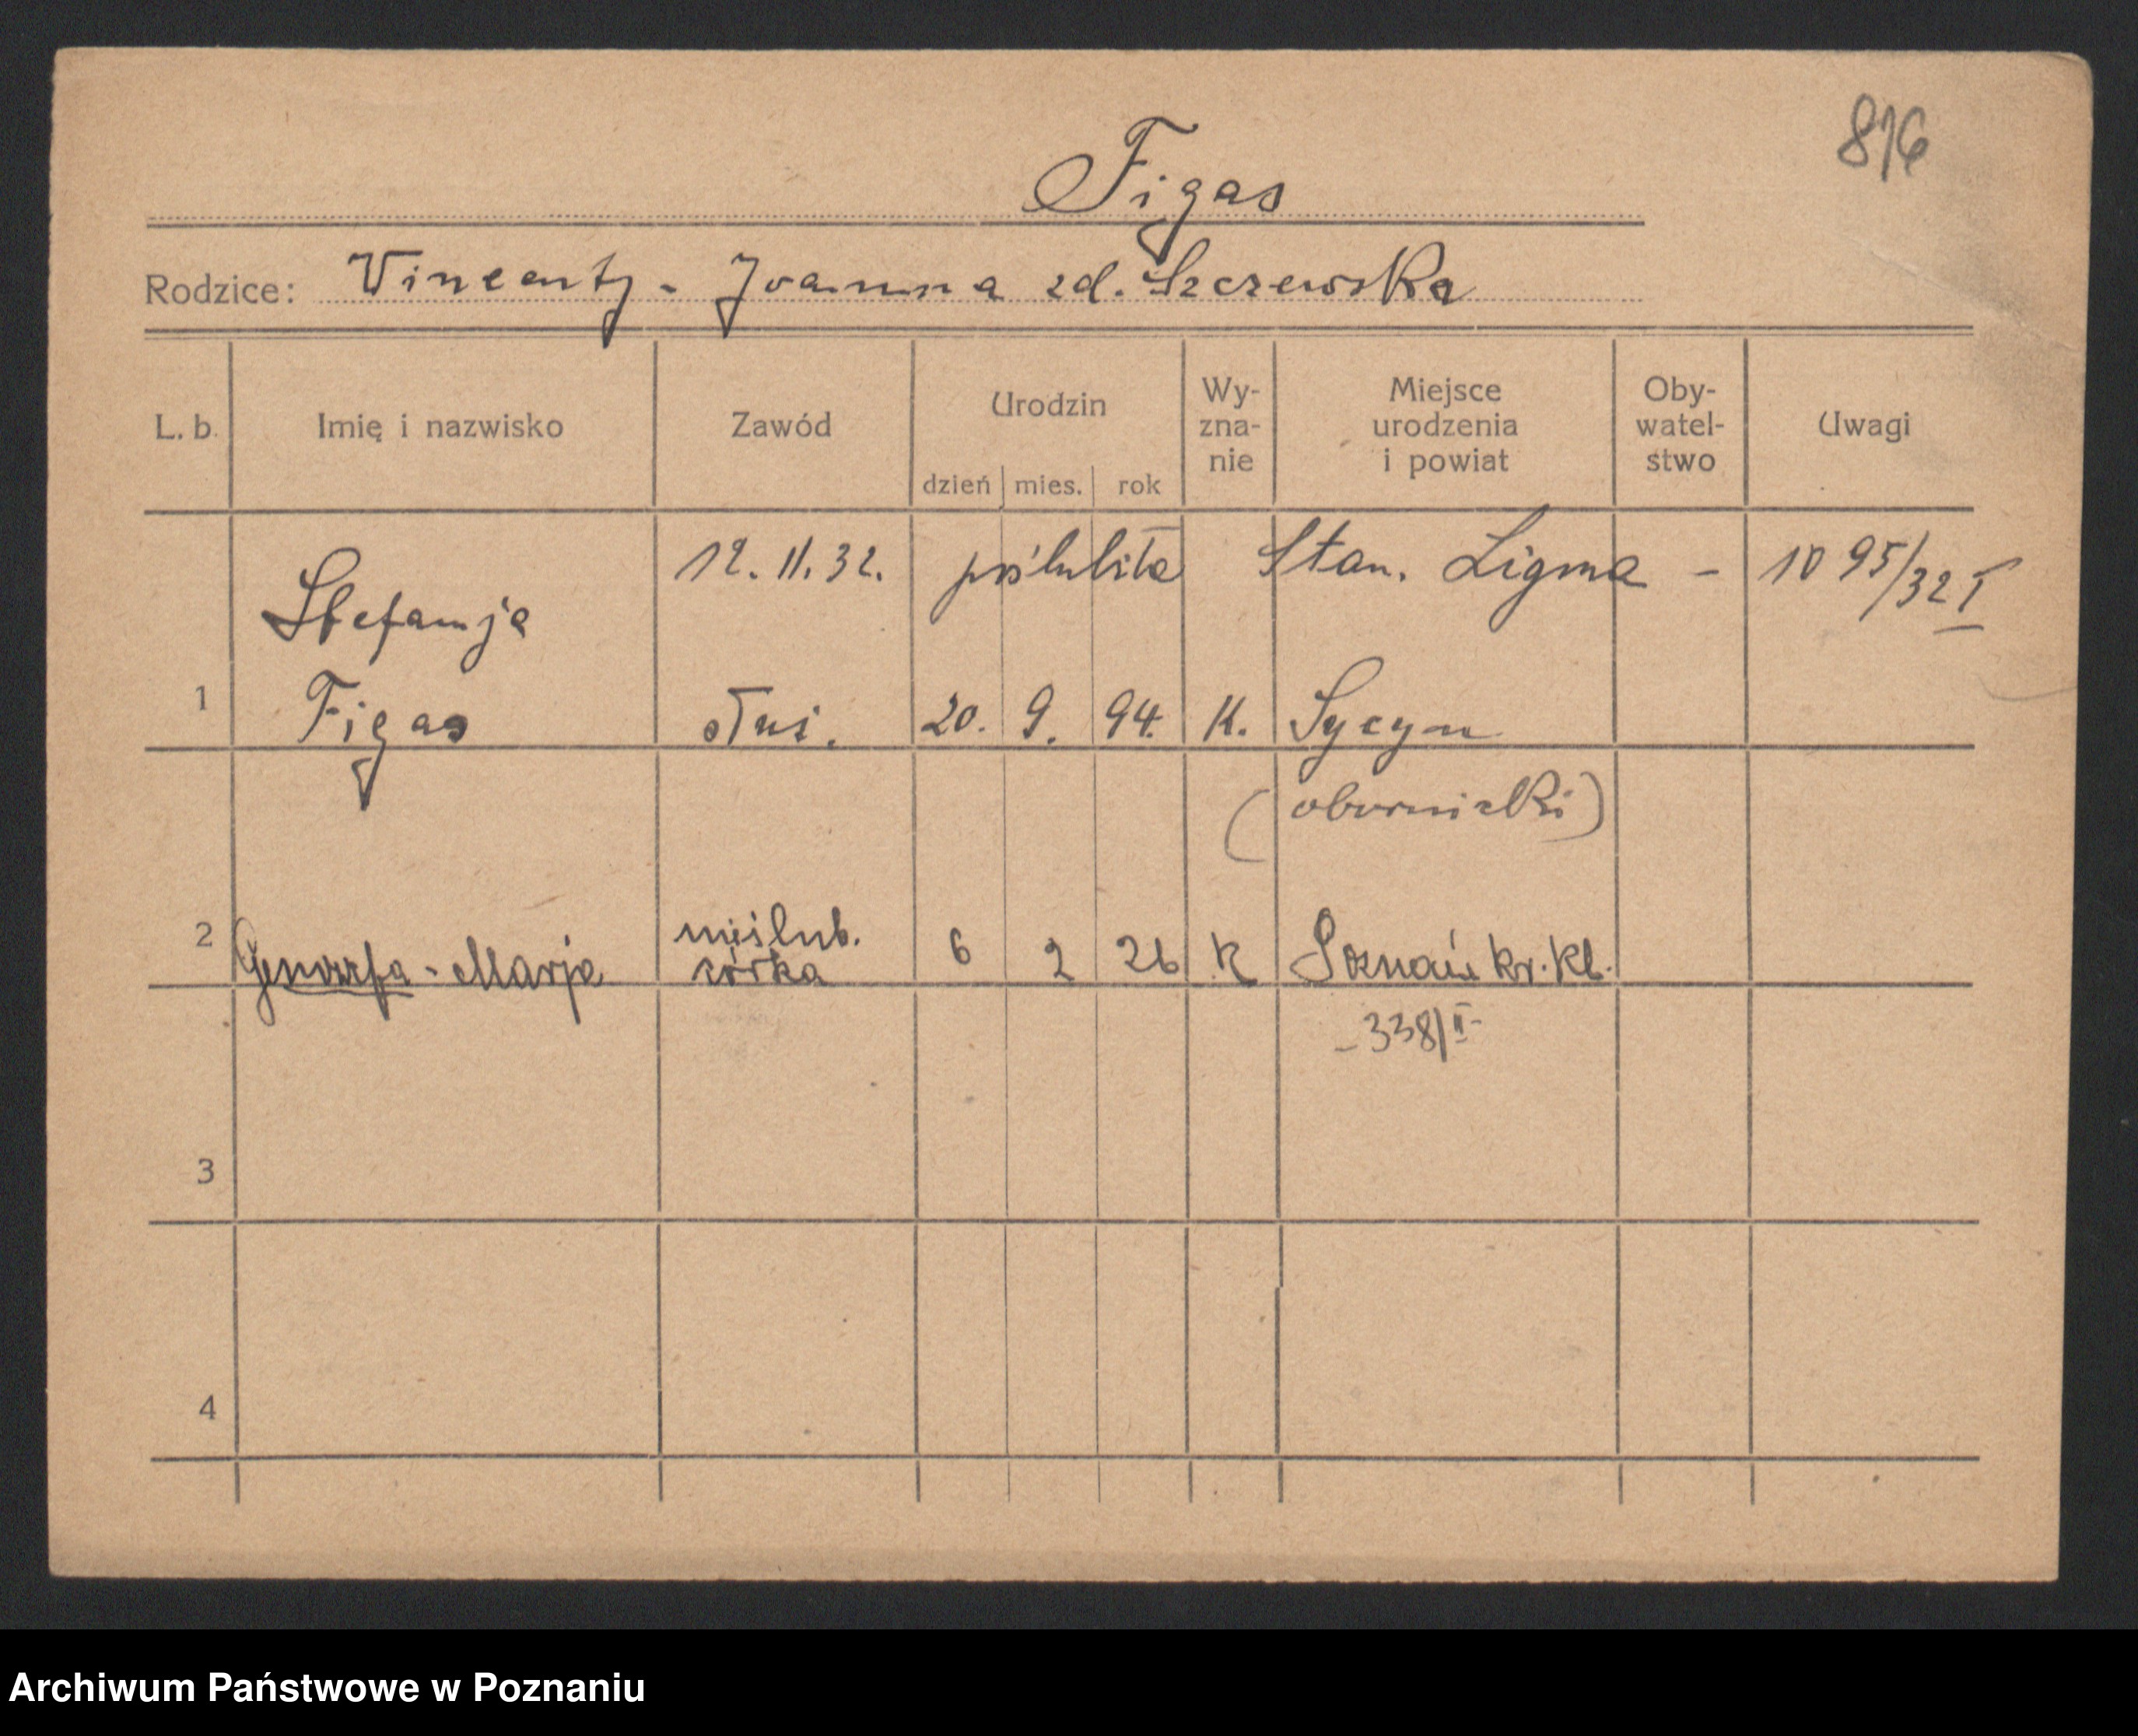 816
Figas
Rodzice: Vincenty - Joanna zd. Szczewska
L. b. Imię i nazwisko Zawód Urodzin dzień mies. rok Wy-zna-nie Miejsce urodzenia i powiat Oby-watel-stwo Uwagi
12. 11. 32. poślubiła Stan. Ligma - 1095/32 I
Stefanja
1 Figas służ. 20. 9. 94. K. Sycyn
(obornicki)
nieślub.
2 Genowefa - Marja córka 6 2 26 K Poznań kr. kl.
- 338/II -
3
4
Archiwum Państwowe w Poznaniu